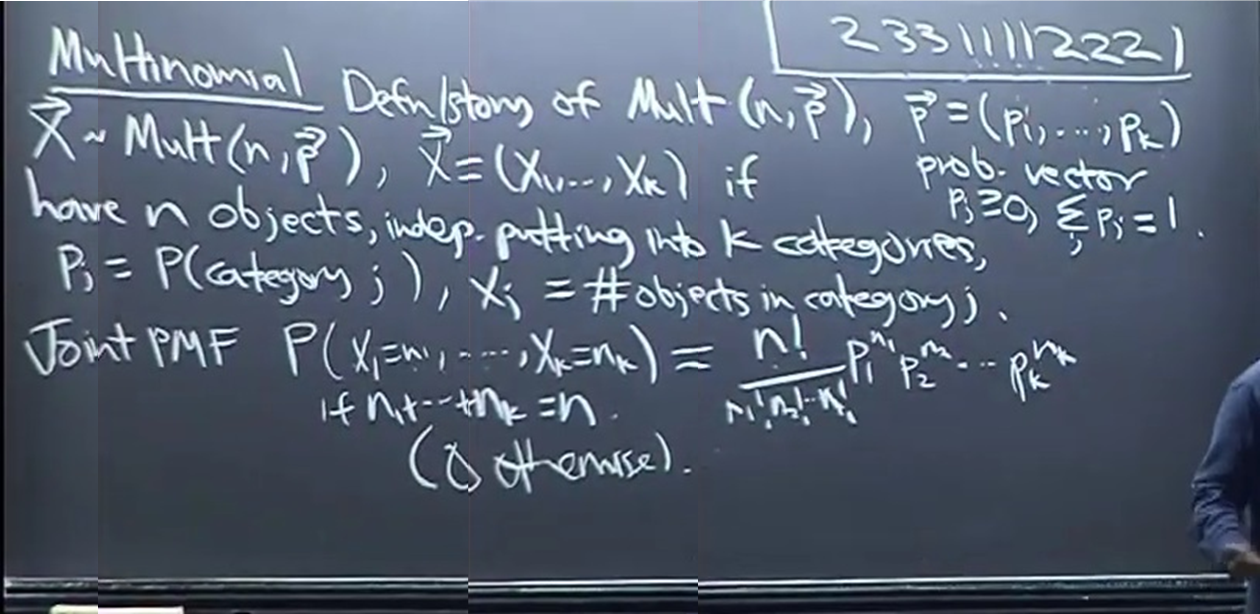 2 3 3 1 1 1 1 1 2 2 2 1
Multinomial Defn/story of Mult (n, p⃗), p⃗ = (p₁, ..., pₖ)
X⃗ ~ Mult(n, p⃗), X⃗ = (X₁, ..., Xₖ) if
prob. vector
pⱼ ≥ 0, Σⱼ pⱼ = 1.
have n objects, indep. putting into k categories,
Pⱼ = P(category j), Xⱼ = # objects in category j.
Joint PMF P(X₁=n₁, ..., Xₖ=nₖ) = n!/(n₁! n₂! ... nₖ!) p₁^n₁ p₂^n₂ ... pₖ^nₖ
if n₁+...+nₖ = n.
(0 otherwise).